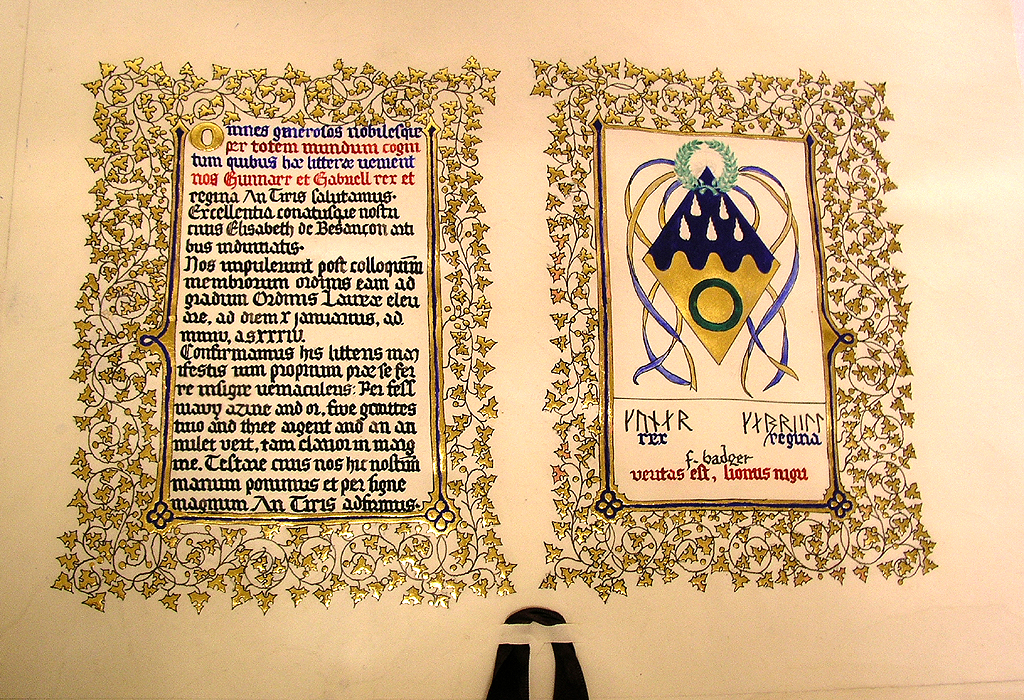 Omnes generosos nobilesque
per totem mundum cogni
tum quibus hae litterae venient
nos Gunnarr et Gabriell rex et
regina An Tiris salutamus.
Excellentia conatusque nostri
civis Elisabeth de Besançon arti
bus induviatis.
Nos impulerunt post colloquim̄
membrorum ordinis eam ad
gradum Ordinis Laureæ eleu
are, ad diem x januarius, ad
mmiv, asxxxiv.
Confirmamus his litteris man
ifestis ium proprium præ se fer
re insigne vernaculens: Per fess
wavy azure and or, five gouttes
two and three argent and an an
nulet vert, tam clario in mag
ne. Testare cuius nos hic nostrm̄
manum ponimus et per signe
magnum An Tiris adfirmus.
ᚴᚢᚾᛅᚱ
rex
regina
f. badger
veritas est, lionus nigri